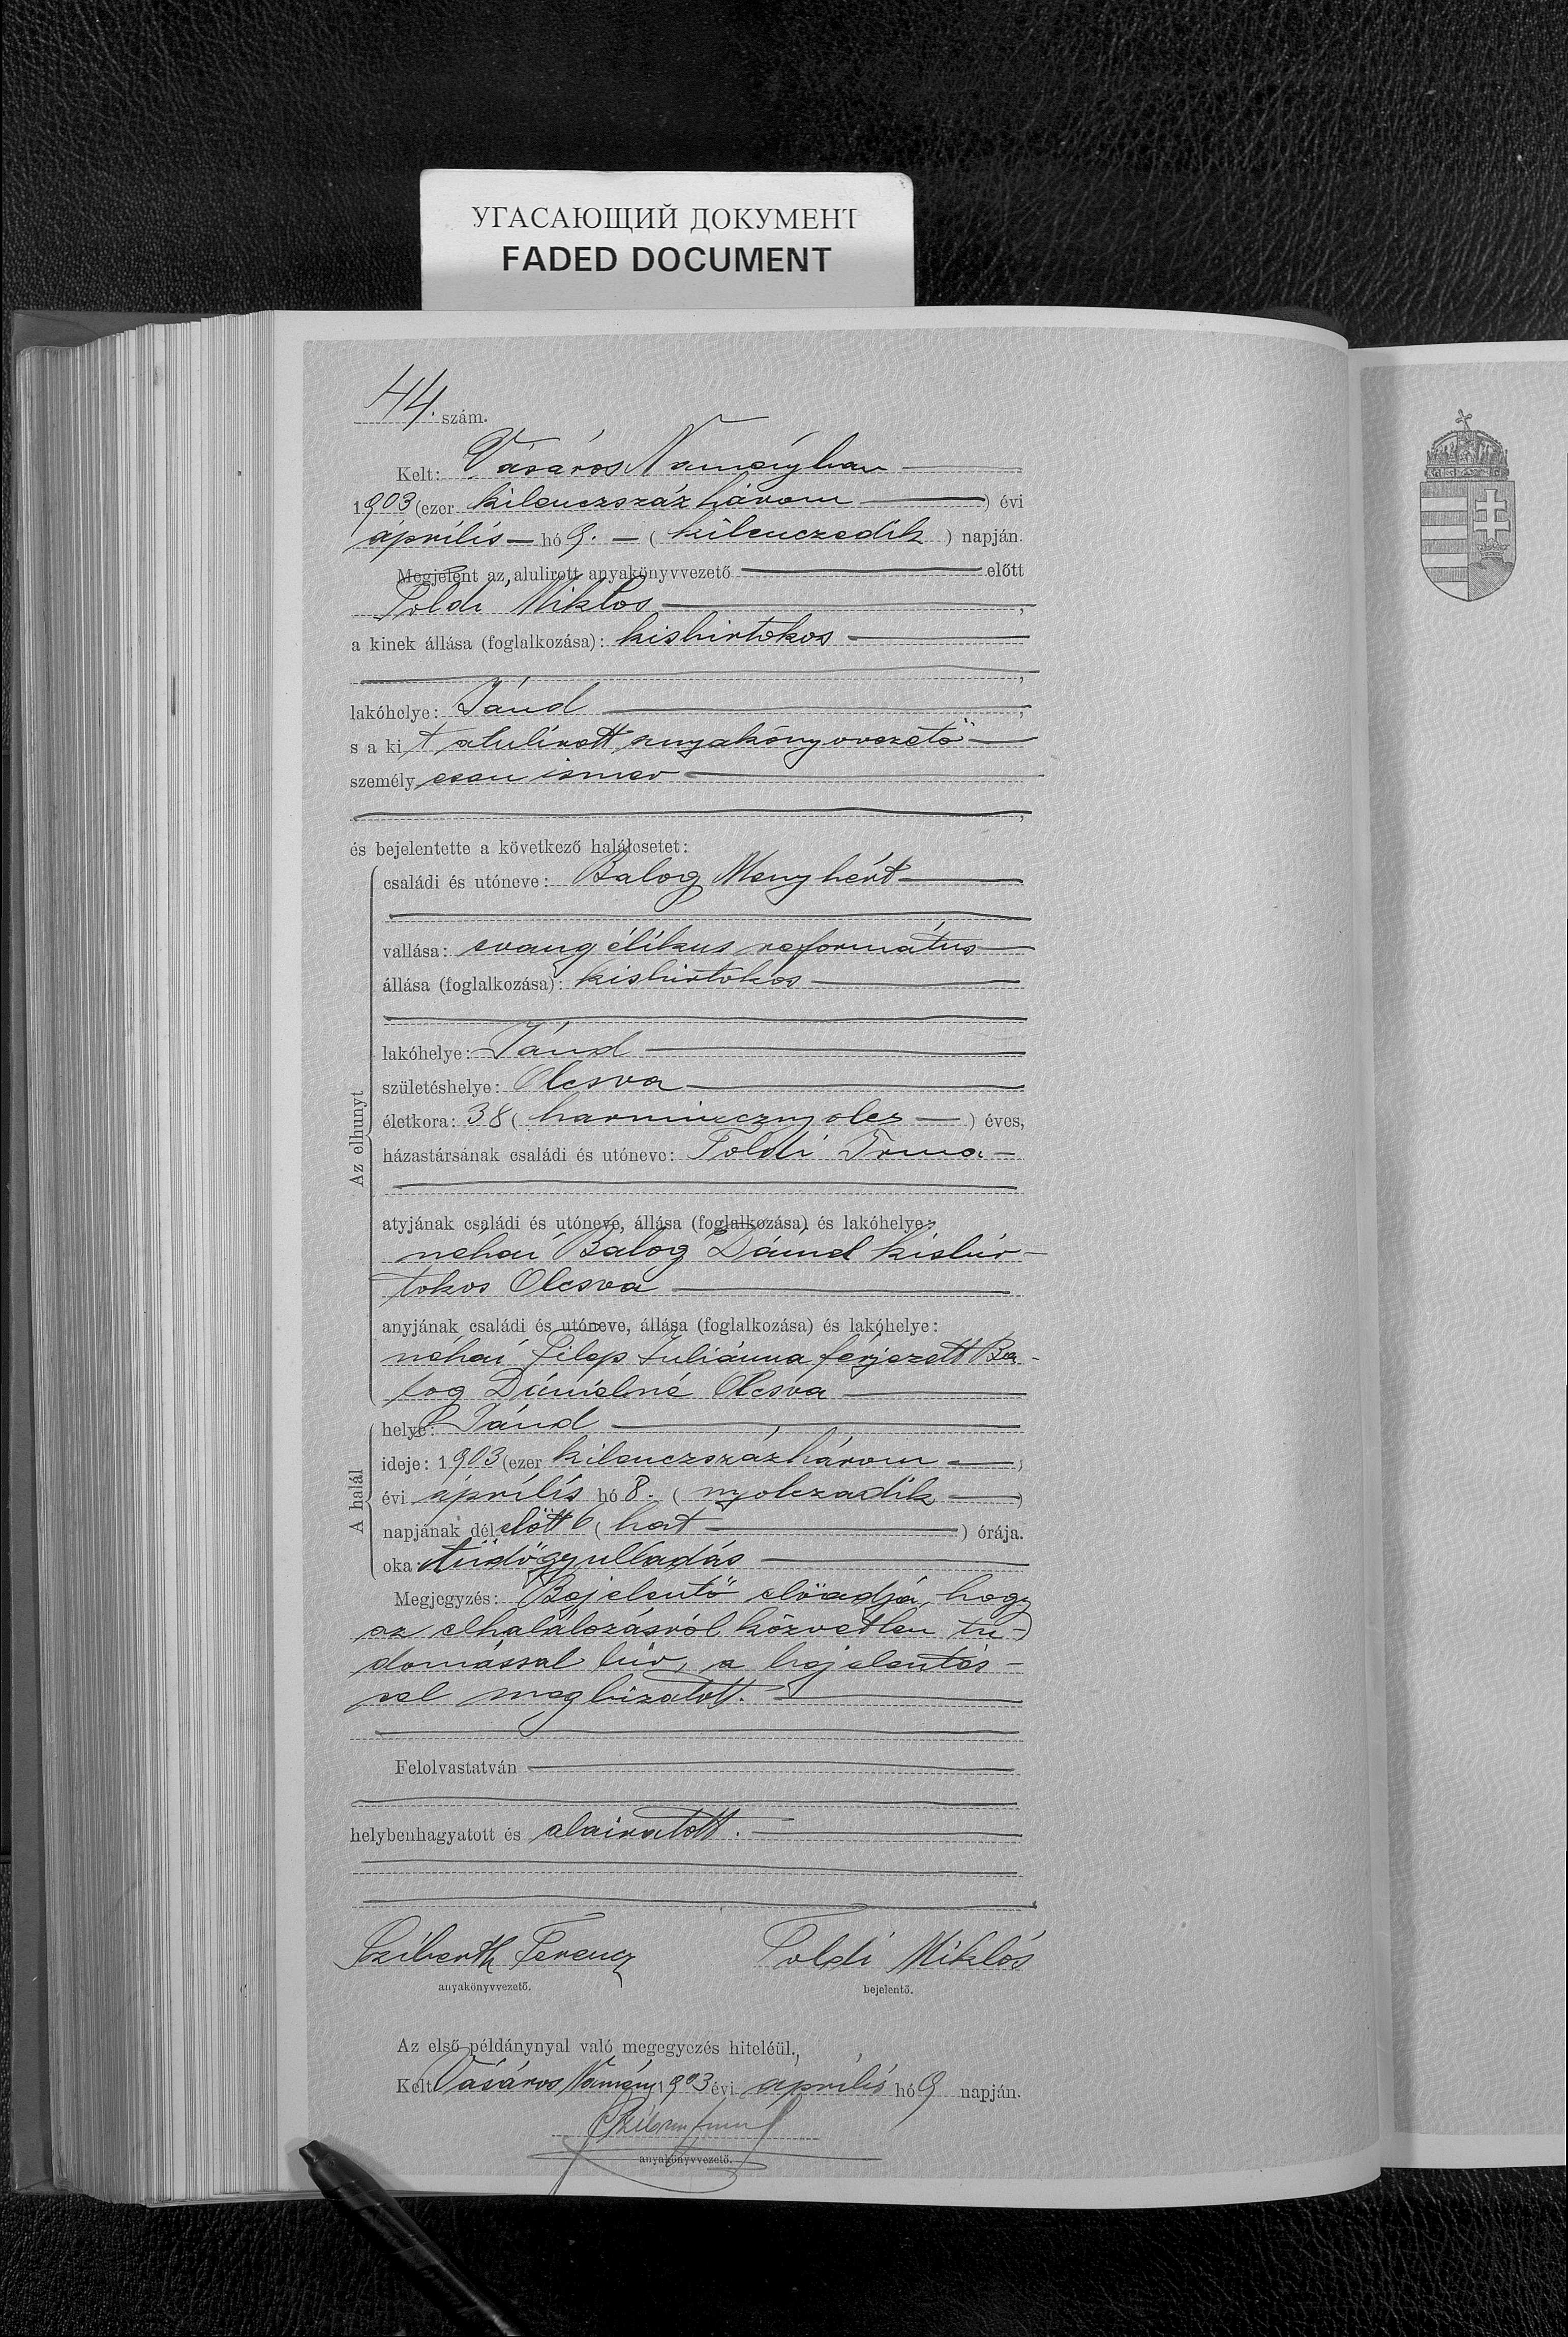 УГАСАЮЩИЙ ДОКУМЕНТ
FADED DOCUMENT
44. szám.
Kelt: Vásáros Naményban
1903 (ezer kilenczszáz három) évi
április hó 9. (kilenczedik) napján.
Megjelent az alulirott anyakönyvvezető előtt
Toldi Miklos,
a kinek állása (foglalkozása): kisbirtokos
,
lakóhelye: Jánd,
s a kit alulirott anyakönyvvezető
személyesen ismer
,
és bejelentette a következő halálesetet:
Az elhunyt
családi és utóneve: Balog Menyhért
vallása: evangélikus református
állása (foglalkozása): kisbirtokos
lakóhelye: Jánd
születéshelye: Olcsva
életkora: 38 (harmincznyolcz) éves,
házastársának családi és utóneve: Toldi Irma
atyjának családi és utóneve, állása (foglalkozása) és lakóhelye:
néhai Balog Dániel kisbir-
tokos Olcsva
anyjának családi és utóneve, állása (foglalkozása) és lakóhelye:
néhai Filep Juliánna férjezett Ba-
log Dánielné Olcsva
A halál
helye: Jánd
ideje: 1903 (ezer kilenczszázhárom)
évi április hó 8. (nyolczadik)
napjának délelőtt 6 (hat) órája.
oka: tüdőgyulladás
Megjegyzés: Bejelentő előadja, hogy
az elhalálozásról közvetlen tu-
domással bir, a bejelentés-
sel megbizatott.
Felolvastatván
helybenhagyatott és aláiratott.
Ferencz Toldi Miklós
anyakönyvvezető. bejelentő.
Az első példánynyal való megegyezés hiteléül.
Kelt Vásáros Namény 1903 évi április hó 9 napján.
anyakönyvvezető.